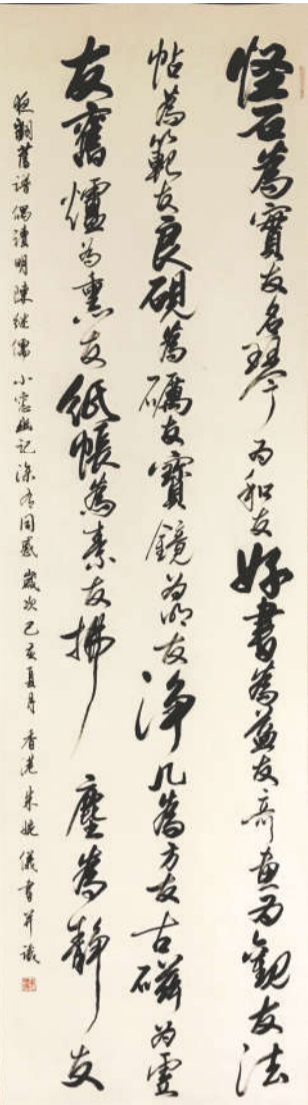 怪石為實友名琴为和友好書為益友奇畫为觀友法
帖為範友良硯為礪友寶鏡為明友淨几為方友古磁为虛
友舊爐为熏友紙帳為素友拂塵為靜友
夜翻舊譜偶讀明陳继儒小窓幽记深有同感歲次己亥夏月香港朱婉儀書并識